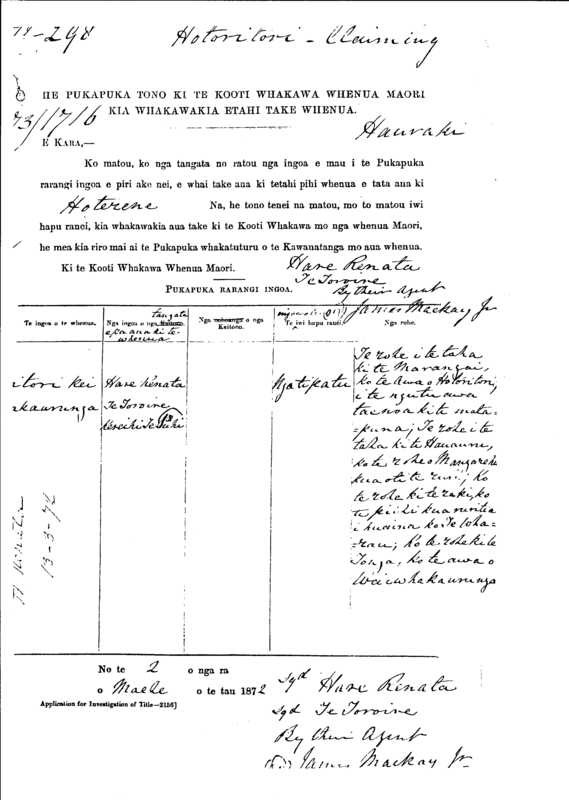 Hotoritori - Claiming
HE PUKAPUKA TONO KI TE KOOTI WHAKAWA WHENUA MAORI
KIA WHAKAWAKIA ETAHI TAKE WHENUA.
73/1716
Hauraki
E KARA,—
Ko matou, ko nga tangata no ratou nga ingoa e mau i te Pukapuka
rarangi ingoa e piri ake nei, e whai take ana ki tetahi pihi whenua e tata ana ki
Hoterene Na, he tono tenei na matou, mo to matou iwi
hapu ranei, kia whakawakia aua take ki te Kooti Whakawa mo nga whenua Maori,
he mea kia riro mai ai te Pukapuka whakatuturu o te Kawanatanga mo aua whenua.
Ki te Kooti Whakawa Whenua Maori.
Hare Renata
Te Toroire
By their Agent
James Mackay Jr
PUKAPUKA RARANGI INGOA.
Te ingoa o te whenua.
tangata
Nga ingoa o nga Kaitono
e pa ana ki te
whenua
Nga o nga
Kaitono.
Te iwi hapu ranei.
Nga rohe.
itori kei
kaurunga
Hare Renata
Te Toroire
Ngatipatu
Te rohe i te taha
ki te Marangai,
ko te awa o Hotoritori,
i te ngutu awa
tae noa ki te mata-
=puna; Te rohe i te
taha ki te Hauauru,
ko te rohe o Mangarehe
kua oti te ruri; ko
te rohe ki te raki, ko
te piihi kua ruritia
i huaina ko Te Wha-
=rau; Ko te rohe ki te
Tonga, ko te awa o
Waiwhakaurunga
13-3-72
No te 2 o nga ra
o Maehe o te tau 1872
Application for Investigation of Title—2156]
sgd Hare Renata
sgd Te Toroire
By their Agent
James Mackay Jr